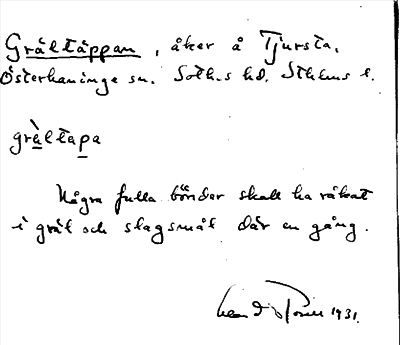 Grältäppan, åker å Tjursta,
Österhaninge sn. Soth.s hd. Sthlms l.
grà̀ltapa
Några fulla bönder skall ha råkat
i gräl och slagsmål där en gång.
1931.